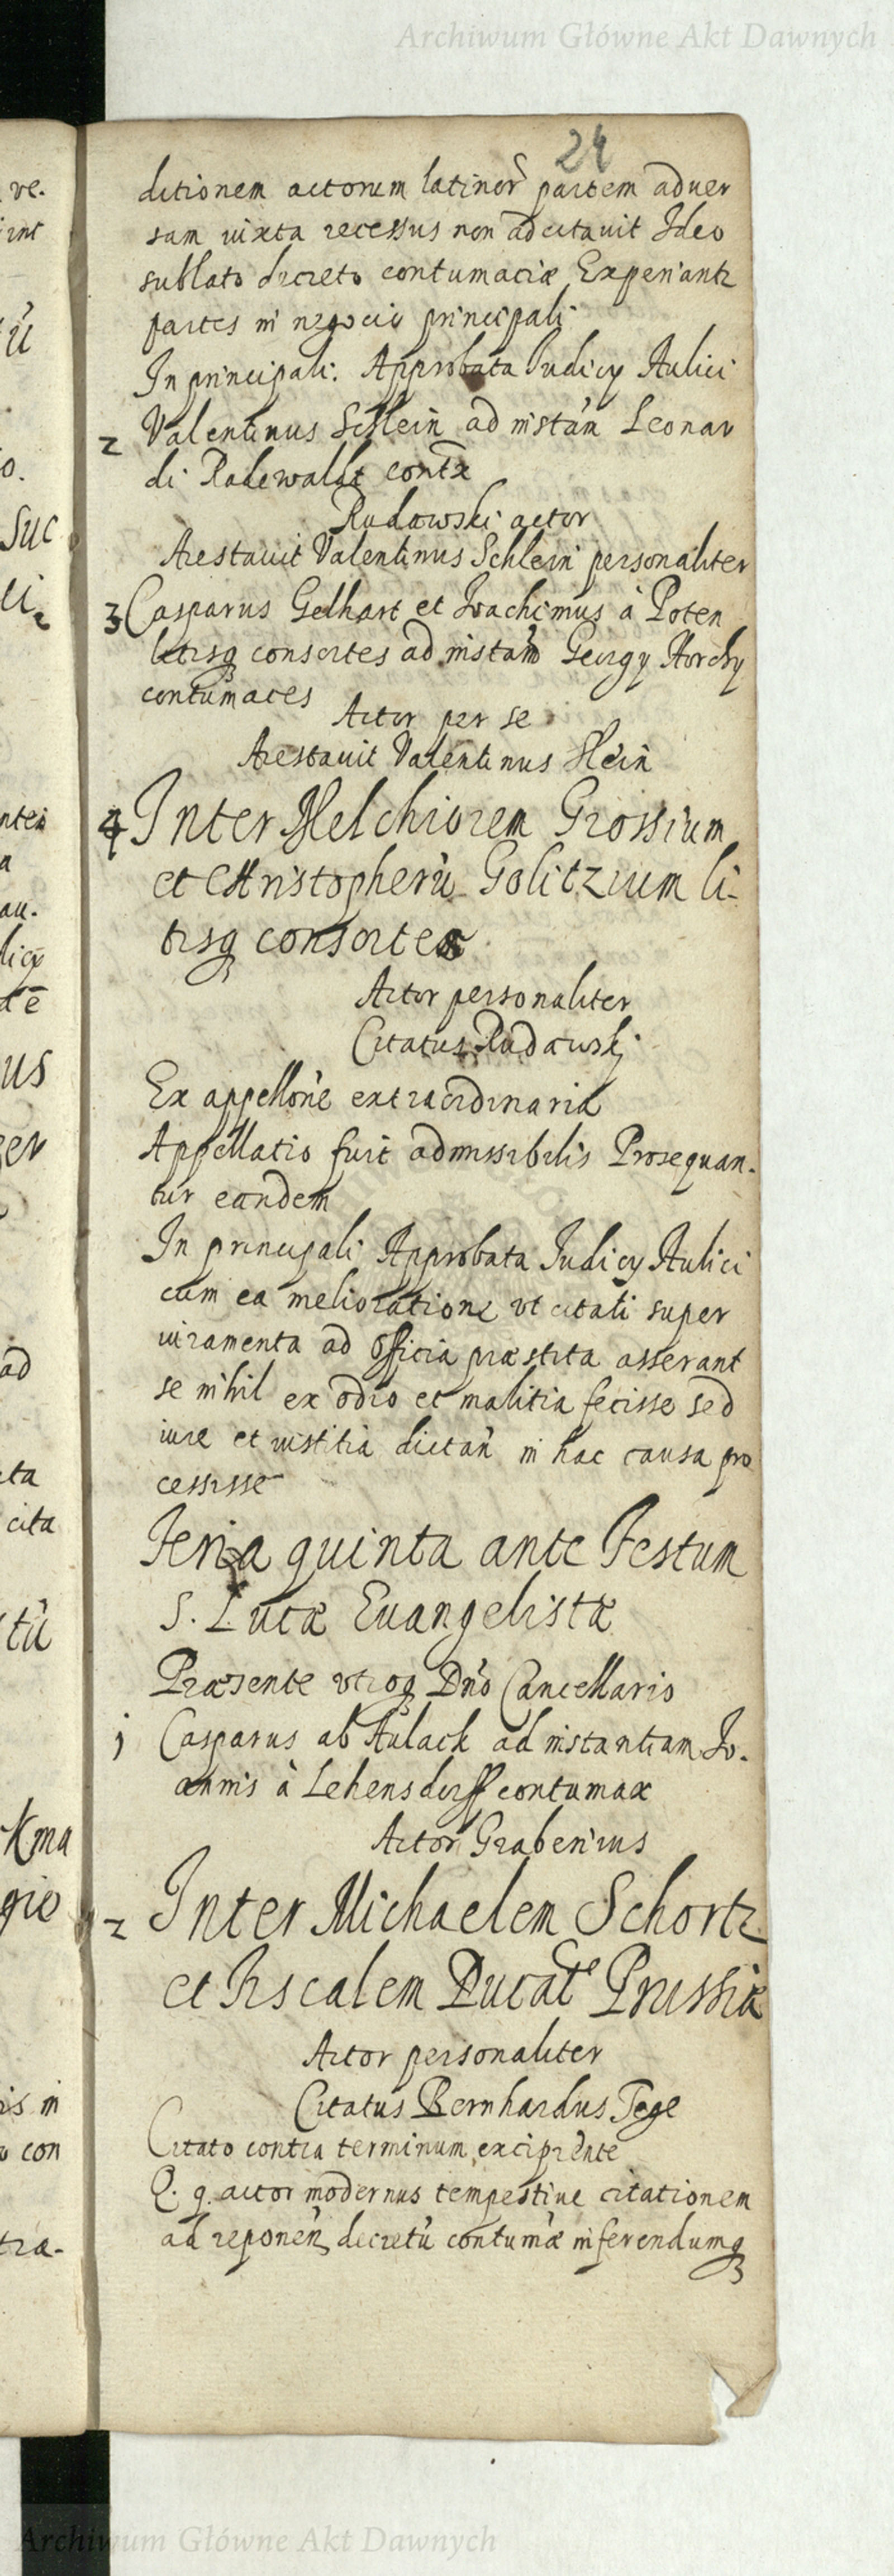 Archiwum Główne Akt Dawnych
24
ditionem actorum latinor̃ partem aduer
sam iuxta recessus non adcitauit Ideo
sublato decreto contumaciæ Experiantr
partes in negocio principali
In principali. Approbata Iudicij Aulici
2 Valentinus Schlein ad instañ Leonar
di Radewaldt contx
Rudowski actor
Arestauit Valentinus Schlein personaliter
3 Casparus Gelhart et Ioachimus à Poten
litisq consortes ad instañ Georgij
contumaces
Actor per se
Arestauit Valentinus Slein
4 Inter Melchiorem Grossium
et Christopherũ Golitzium li-
tisq consortes
Actor personaliter
Citatus Rudawskj
Ex appellõne extraordinaria
Appellatio fuit admissibilis Prosequan-
tur eandem
In principali Approbata Iudicij Aulici
cum ea melioratione vt citati super
iuramenta ad officia præstita asserant
se nihil ex odio et malitia fecisse sed
iure et iustitia dictañ in hac causa pro
cessisse
Feria quinta ante Festum
S. Lucæ Euangelistæ
Præsente vtroq Dño Cancellario
1 Casparus ab Aulack ad instantiam Io-
annis à Lehensdorff contumax
Actor Grabenius
2 Inter Michaelem Schortz
et Fiscalem Ducats Prussiæ
Actor personaliter
Citatus Bernhardus Tege
Citato contra terminum excipiente
Q. q. actor modernus tempestiue citationem
ad reponeñ decretũ contumæ inferendumq
ve.
Suc
au.
us
ad
cita
tũ
gio
is in
con
tra-
Archiwum Główne Akt Dawnych